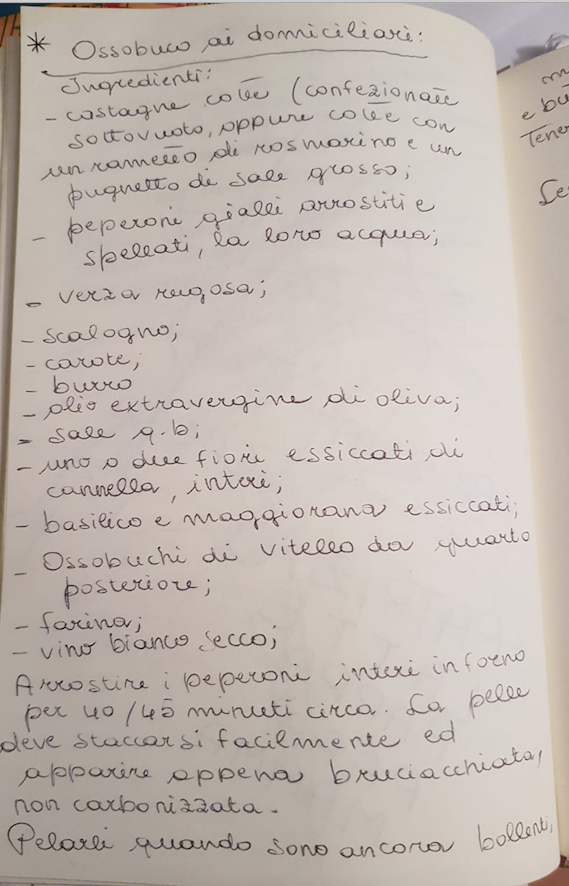 * Ossobuco ai domiciliari:
Ingredienti:
- castagne cotte (confezionate
sottovuoto, oppure cotte con
un rametto di rosmarino e un
pugnetto di sale grosso;
- peperoni gialli arrostiti e
spellati, la loro acqua;
- verza rugosa;
- scalogno;
- carote;
- burro
- olio extravergine di oliva;
- sale q.b;
- uno o due fiori essiccati di
cannella, interi;
- basilico e maggiorana essiccati;
- Ossobuchi di vitello da quarto
posteriore;
- farina;
- vino bianco secco;
Arrostire i peperoni interi in forno
per 40/45 minuti circa. La pelle
deve staccarsi facilmente ed
apparire appena bruciacchiata,
non carbonizzata.
Pelarli quando sono ancora bollenti,
e bu
Tener